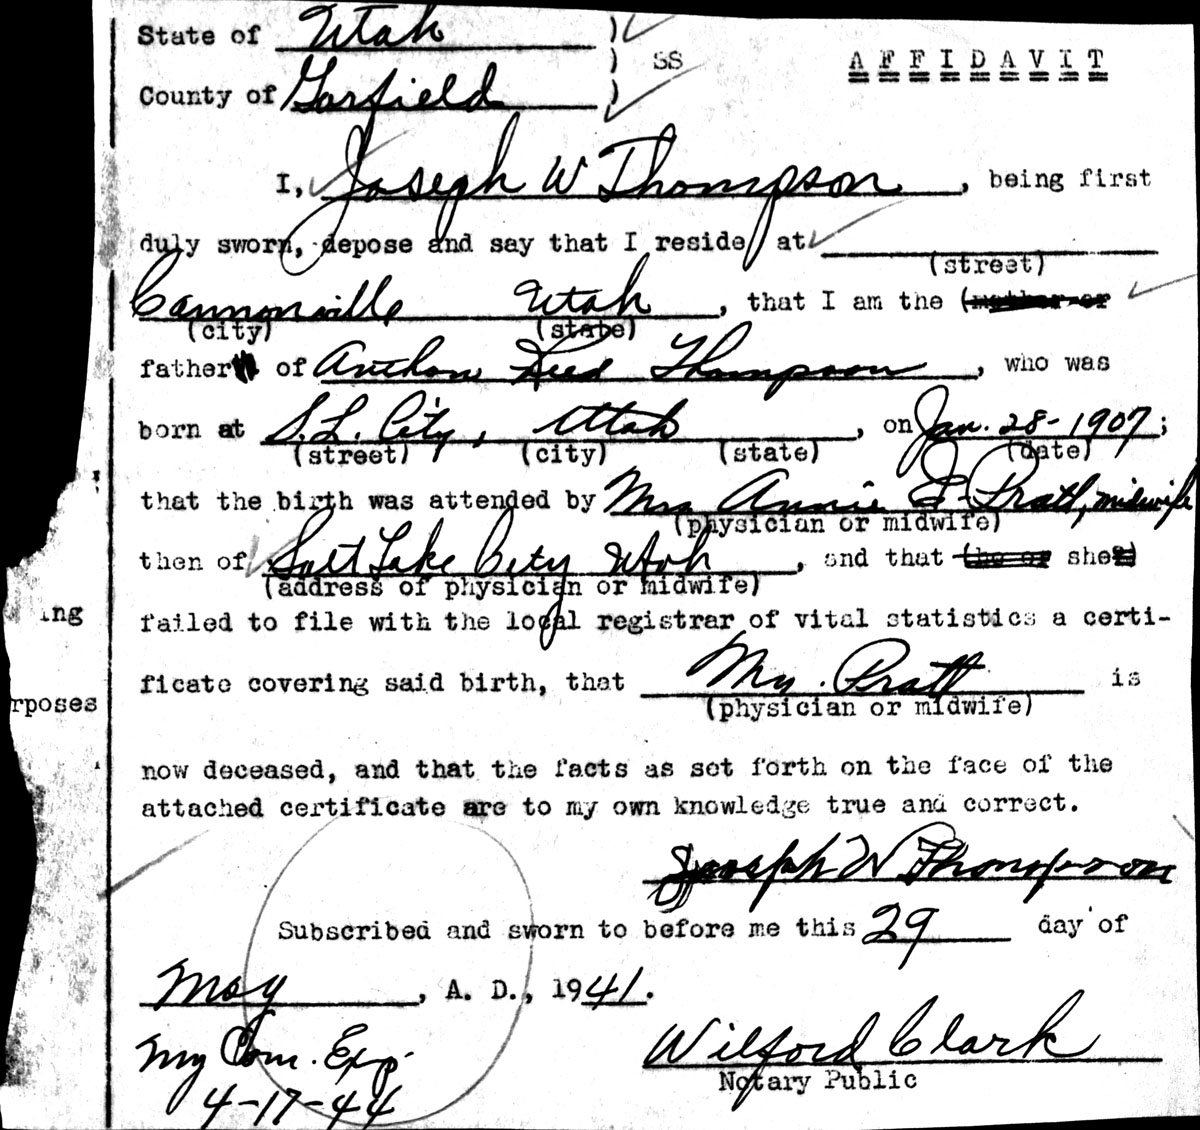 State of Utah ) SS AFFIDAVIT
County of Garfield )
I, Joseph W Thompson, being first
duly sworn, depose and say that I reside at
(street)
Cannonville Utah, that I am the (mother or
(city) (state)
father of Anthon Reed Thompson, who was
born at S.L. City, Utah, on Jan. 28-1907;
(street) (city) (state) (date)
that the birth was attended by Mrs Annie S. Pratt, midwife
(physician or midwife)
then of Salt Lake City Utah, and that (he or she)
(address of physician or midwife)
ing
failed to file with the local registrar of vital statistics a certi-
ficate covering said birth, that Mrs. Pratt is
rposes
(physician or midwife)
now deceased, and that the facts as set forth on the face of the
attached certificate are to my own knowledge true and correct.
Joseph W Thompson
Subscribed and sworn to before me this 29 day of
May, A. D., 1941.
My Com. Exp. Wilford Clark
4-17-44 Notary Public